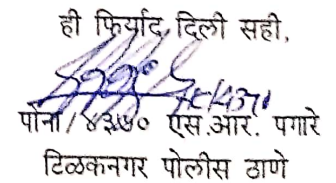 ही फिर्याद दिली सही,
पोना/४३७० एस.आर. पगारे
टिळकनगर पोलीस ठाणे